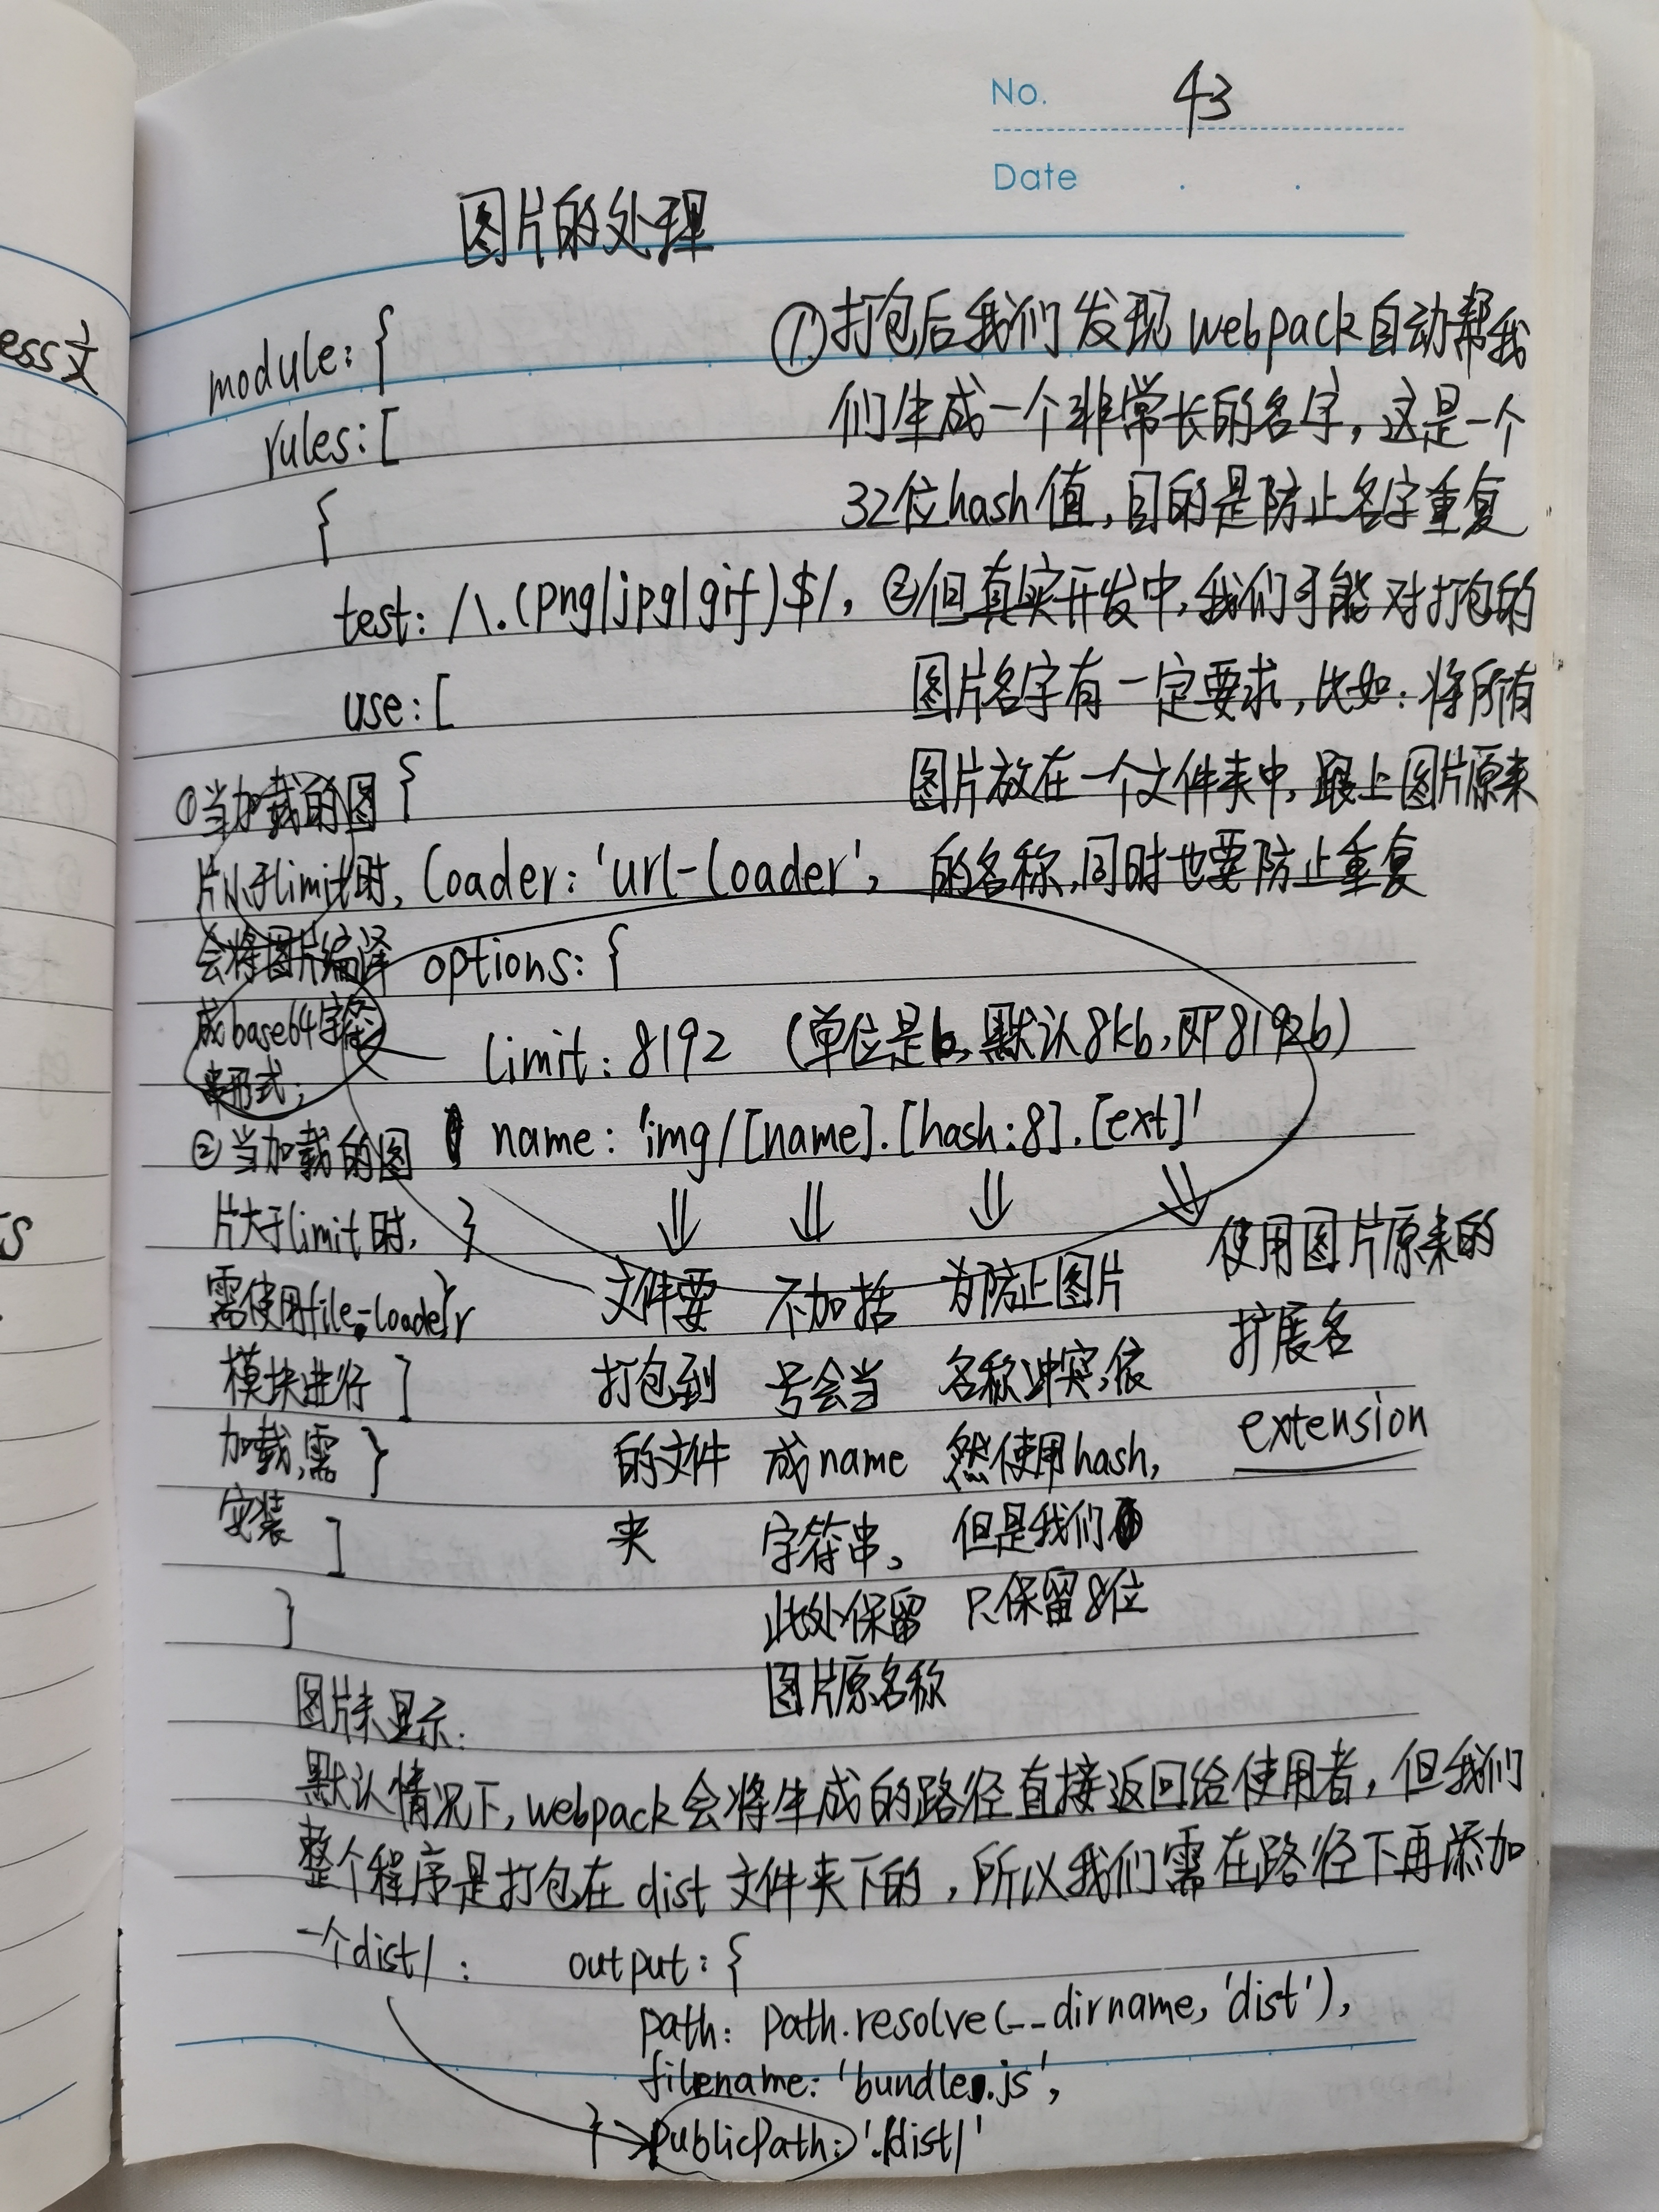 No. 43
Date
图片的处理
module: {
rules: [
{
test: /\.(png|jpg|gif)$/,
use: [
{
loader: 'url-loader',
options: {
limit: 8192 (单位是b,默认8kb,即8192b)
name: 'img/[name].[hash:8].[ext]'
}
}
]
}
]
}
①打包后我们发现webpack自动帮我
们生成一个非常长的名字,这是一个
32位hash值,目的是防止名字重复
②但真实开发中,我们可能对打包的
图片名字有一定要求,比如:将所有
图片放在一个文件夹中,跟上图片原来
的名称,同时也要防止重复
①当加载的图
片小于limit时,
会将图片编译
成base64字符
串形式;
②当加载的图
片大于limit时,
需使用file-loader
模块进行
加载,需
安装
文件要
打包到
的文件
夹
不加括
号会当
成name
字符串,
此处保留
图片原名称
为防止图片
名称冲突,依
然使用hash,
但是我们
只保留8位
使用图片原来的
扩展名
extension
图片未显示:
默认情况下,webpack会将生成的路径直接返回给使用者,但我们
整个程序是打包在dist文件夹下的,所以我们需在路径下再添加
一个dist/: output: {
path: path.resolve(__dirname, 'dist'),
filename: 'bundle.js',
} publicPath: './dist/'
ess文